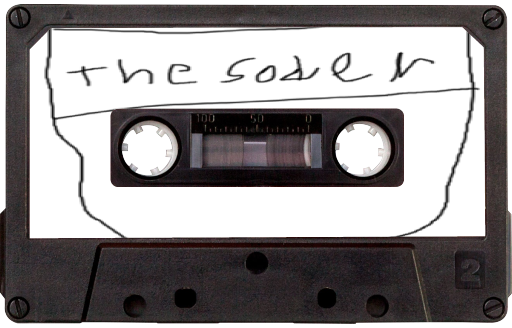 the soder
100 50 0
2